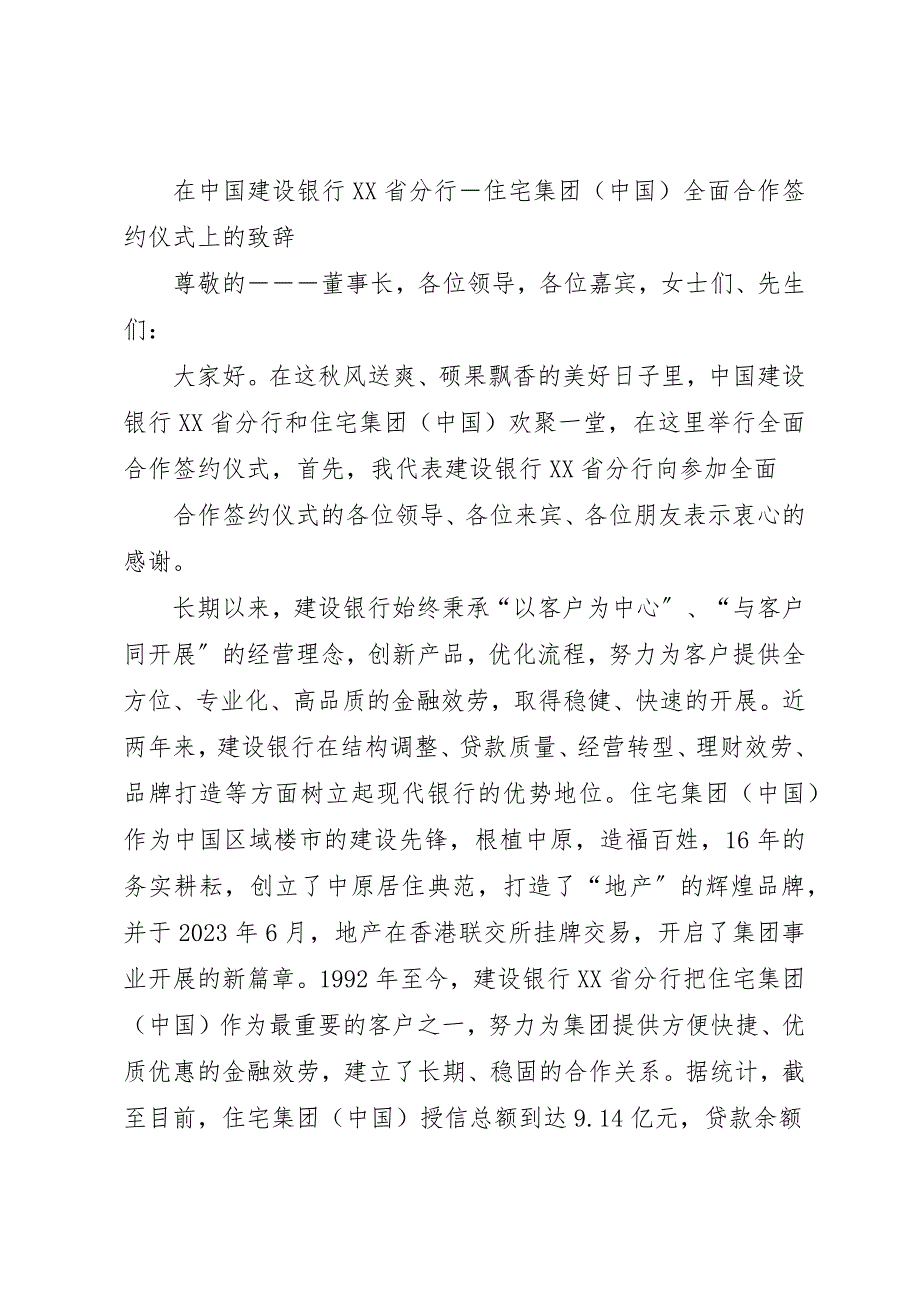 在中国建设银行 XX 省分行－住宅集团（中国）全面合作签
约仪式上的致辞
尊敬的－－－董事长，各位领导，各位嘉宾，女士们、先生
们：
大家好。在这秋风送爽、硕果飘香的美好日子里，中国建设
银行 XX 省分行和住宅集团（中国）欢聚一堂，在这里举行全面
合作签约仪式，首先，我代表建设银行 XX 省分行向参加全面
合作签约仪式的各位领导、各位来宾、各位朋友表示衷心的
感谢。
长期以来，建设银行始终秉承“以客户为中心〞、“与客户
同开展〞的经营理念，创新产品，优化流程，努力为客户提供全
方位、专业化、高品质的金融效劳，取得稳健、快速的开展。近
两年来，建设银行在结构调整、贷款质量、经营转型、理财效劳、
品牌打造等方面树立起现代银行的优势地位。住宅集团（中国）
作为中国区域楼市的建设先锋，根植中原，造福百姓，16 年的
务实耕耘，创立了中原居住典范，打造了“地产〞的辉煌品牌，
并于 2023 年 6 月，地产在香港联交所挂牌交易，开启了集团事
业开展的新篇章。1992 年至今，建设银行 XX 省分行把住宅集团
（中国）作为最重要的客户之一，努力为集团提供方便快捷、优
质优惠的金融效劳，建立了长期、稳固的合作关系。据统计，截
至目前，住宅集团（中国）授信总额到达 9.14 亿元，贷款余额